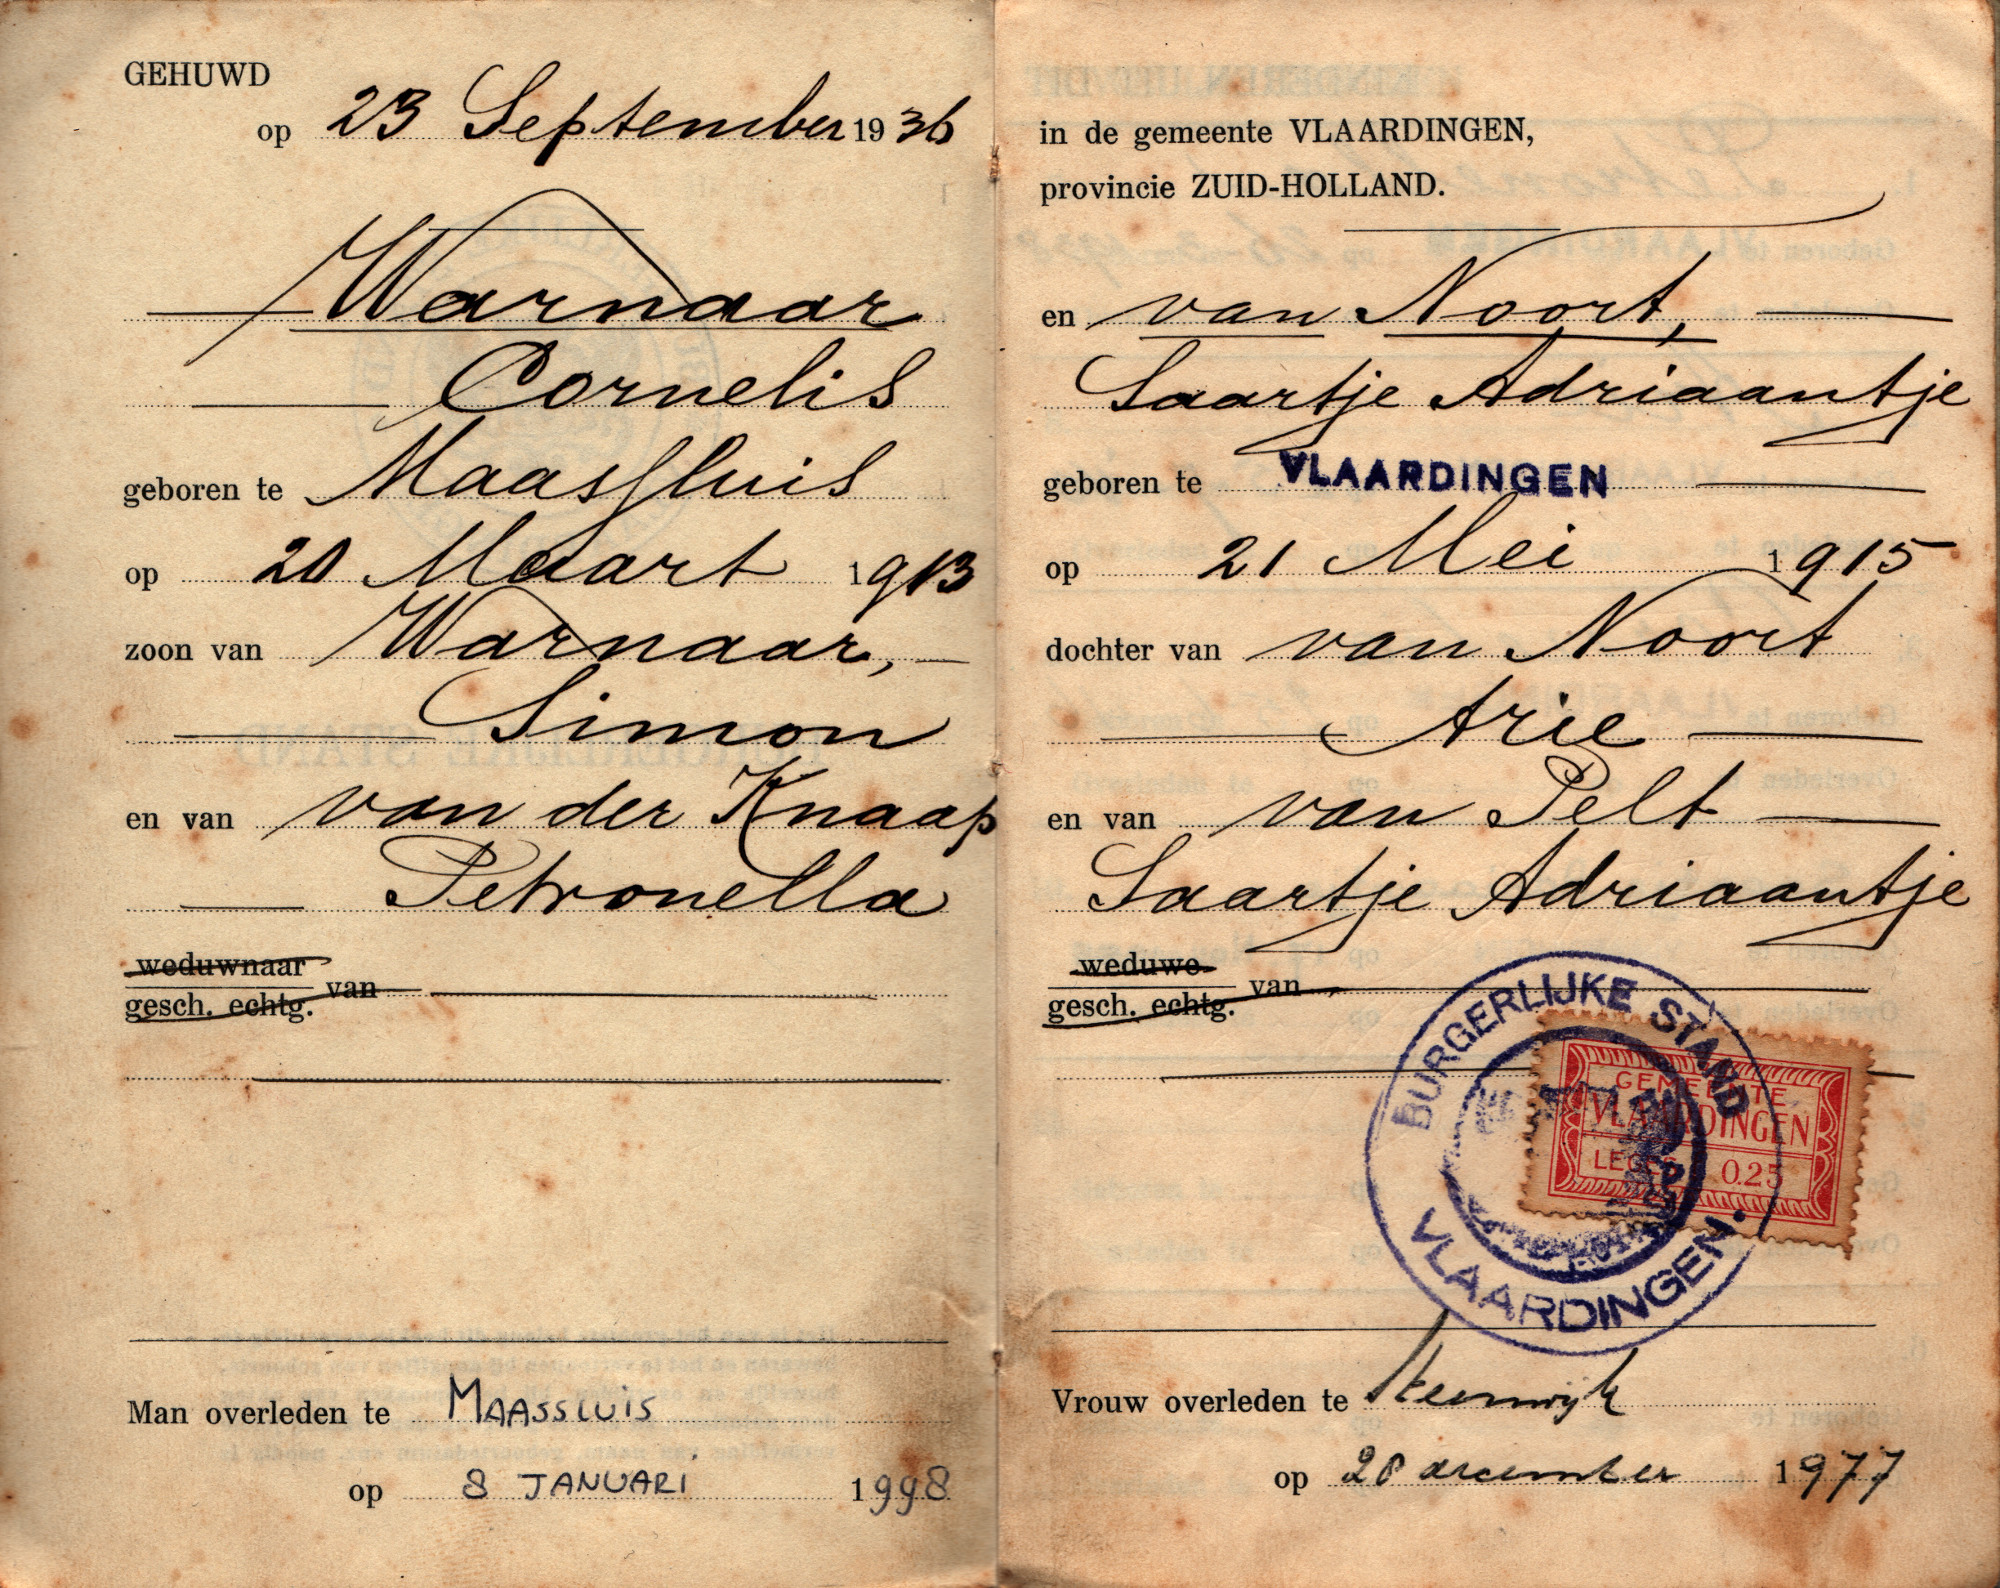 GEHUWD
op 23 September 1936
Warnaar
Cornelis
geboren te Maassluis
op 20 Maart 1913
zoon van Warnaar,
Simon
en van van der Knaap
Petronella
weduwnaar
gesch. echtg. van
Man overleden te MAASSLUIS
op 8 JANUARI 1998
in de gemeente VLAARDINGEN,
provincie ZUID-HOLLAND.
en van Noort,
Saartje Adriaantje
geboren te VLAARDINGEN
op 21 Mei 1915
dochter van van Noort
Arie
en van van Pelt
Saartje Adriaantje
weduwe
gesch. echtg. van
BURGERLIJKE STAND
VLAARDINGEN.
GEMEENTE
VLAARDINGEN
LEGES 0.25
Vrouw overleden te Steenwijk
op 20 december 1977